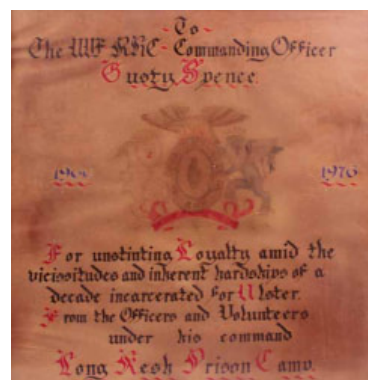 - To -
The UVF RHC - Commanding Officer
Gusty Spence.
1966 1976
For unstinting Loyalty amid the
vicissitudes and inherent hardships of a
decade incarcerated for Ulster.
From the Officers and Volunteers
under his command
Long Kesh Prison Camp.